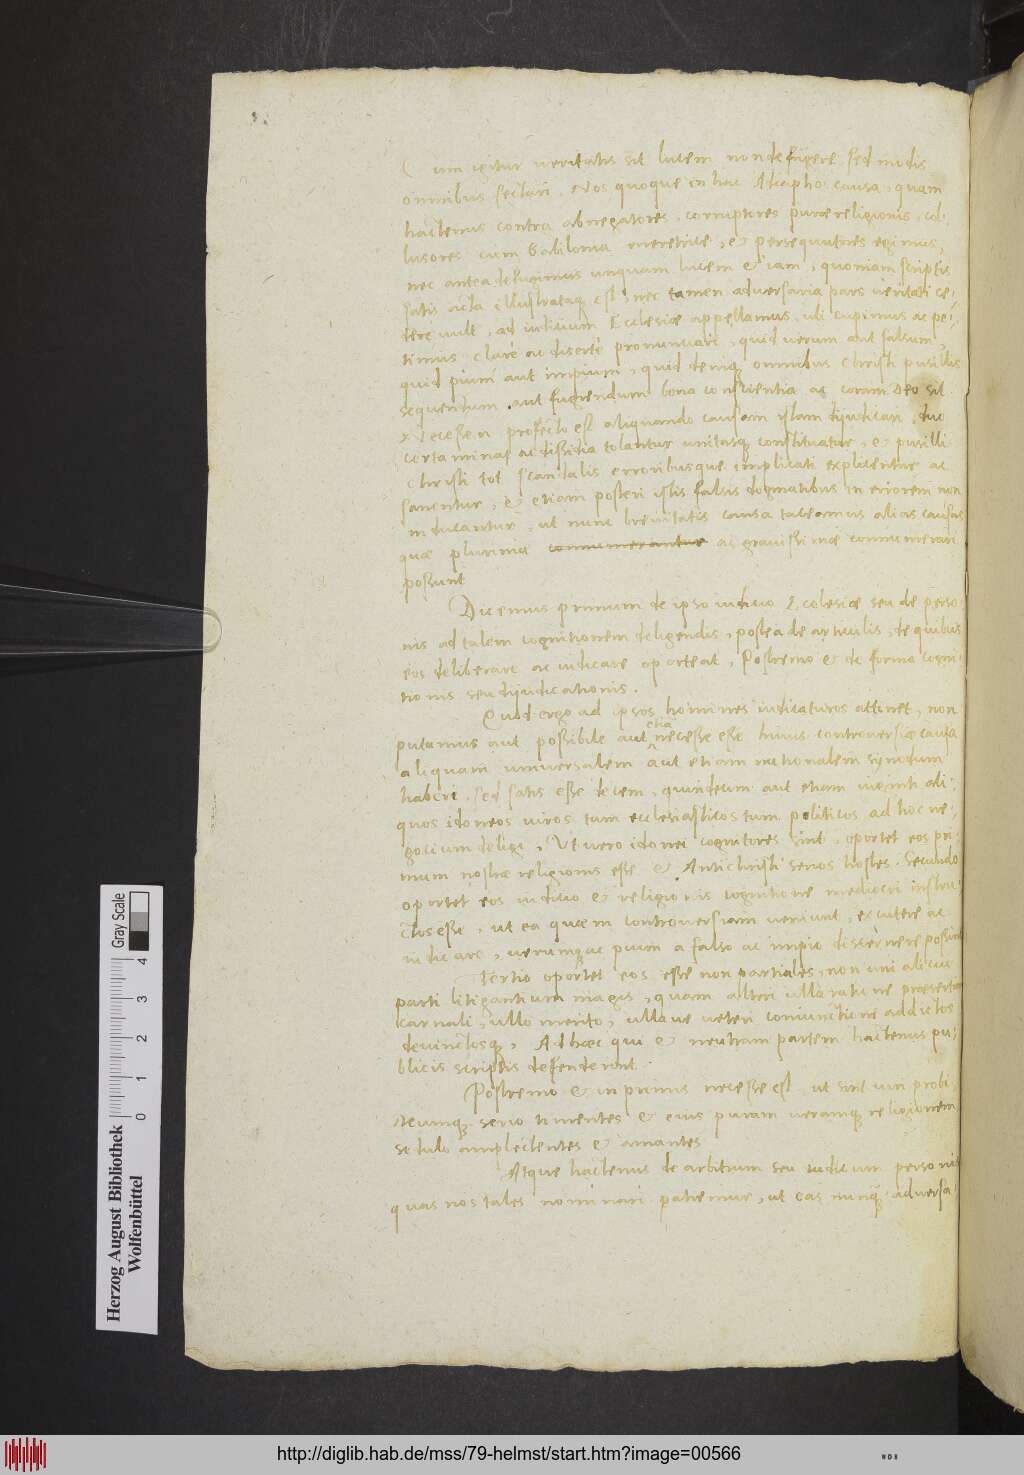 Cum igitur veritatis sit lucem non defugere sed modis
omnibus sectari. Nos quoque in hac Adiaphor causa, quam
hactenus contra abnegatores, corruptores purae religionis, col-
lusores cum Babilonia meretrice, et persequutores egimus,
nec antea defugimus unquam lucem et iam, quoniam scriptis
satis acta illustrataq est, nec tamen adversaria pars veritati ce-
dere vult, ad iudicium Ecclesiae appellamus, ubi cupimus ac pe-
timus clarè ac disertè pronuntiari, quid verum aut falsum,
quid pium aut impium, quid deniq omnibus Christi pusillis
sequendum aut fugiendum bona conscientia ac coram Deo sit.
Necesse n profectò est aliquando causam istam dijudicari, quo
certamina ac dissidia tolantur unitasq constituatur, et pusilli
Christi tot scandalis erroribusque implicati explicentur ac
sanentur, et etiam posteri istis falsis dogmatibus in errorem non
inducantur, ut nunc brevitatis causa taceamus alias causas
quae plurimae connumerantur ac gravissimae connumerari
possunt
Dicemus primum de ipso iudicio Ecclesiae seu de perso-
nis ad talem cognitionem deligendis, postea de articulis, de quibus
eos deliberare ac iudicare oporteat, Postremo et de forma cogni-
tionis seu dijudicationis.
Quod ergo ad ipsos homines iudicaturos attinet, non
putamus aut possibile aut etiã necesse esse huius controversiae causa
aliquam universalem aut etiam nationalem synodum
haberi, sed satis esse decem, quindecim aut etiam viginti ali-
quos idoneos viros tum ecclesiasticos tum politicos ad hoc ne-
gocium deligi, Ut vero idonei cognitores sint, oportet eos pri-
mum nostrae religionis esse et Antichristi serios hostes. Secundo
oportet eos iuditio et religionis cognitione mediocri instru-
ctos esse, ut ea quae in controversiam veniunt, excutere ac
iudicare, verumque ac pium a falso ac impio discernere possint
Tertio oportet eos esse non partiales, non uni alicui
parti litigantium magis, quam alteri ulla ratione praesertim
carnali, ullo merito, ullave veteri coniunctione addictos
devinctosq, Adhaec qui et neutram partem hactenus pu-
blicis scriptis defenderunt.
Postremo et in primis necesse est, ut sint viri probi,
Deumq serio timentes et eius puram veramq religionem
sedulo amplectentes et amantes
Atque hactenus de arbitrum seu iudicum personis
quas nos tales nominari patiemur, ut eas nunq adversa-
Herzog August Bibliothek
Wolfenbüttel
0 1 2 3 4
Gray Scale
http://diglib.hab.de/mss/79-helmst/start.htm?image=00566
WDB